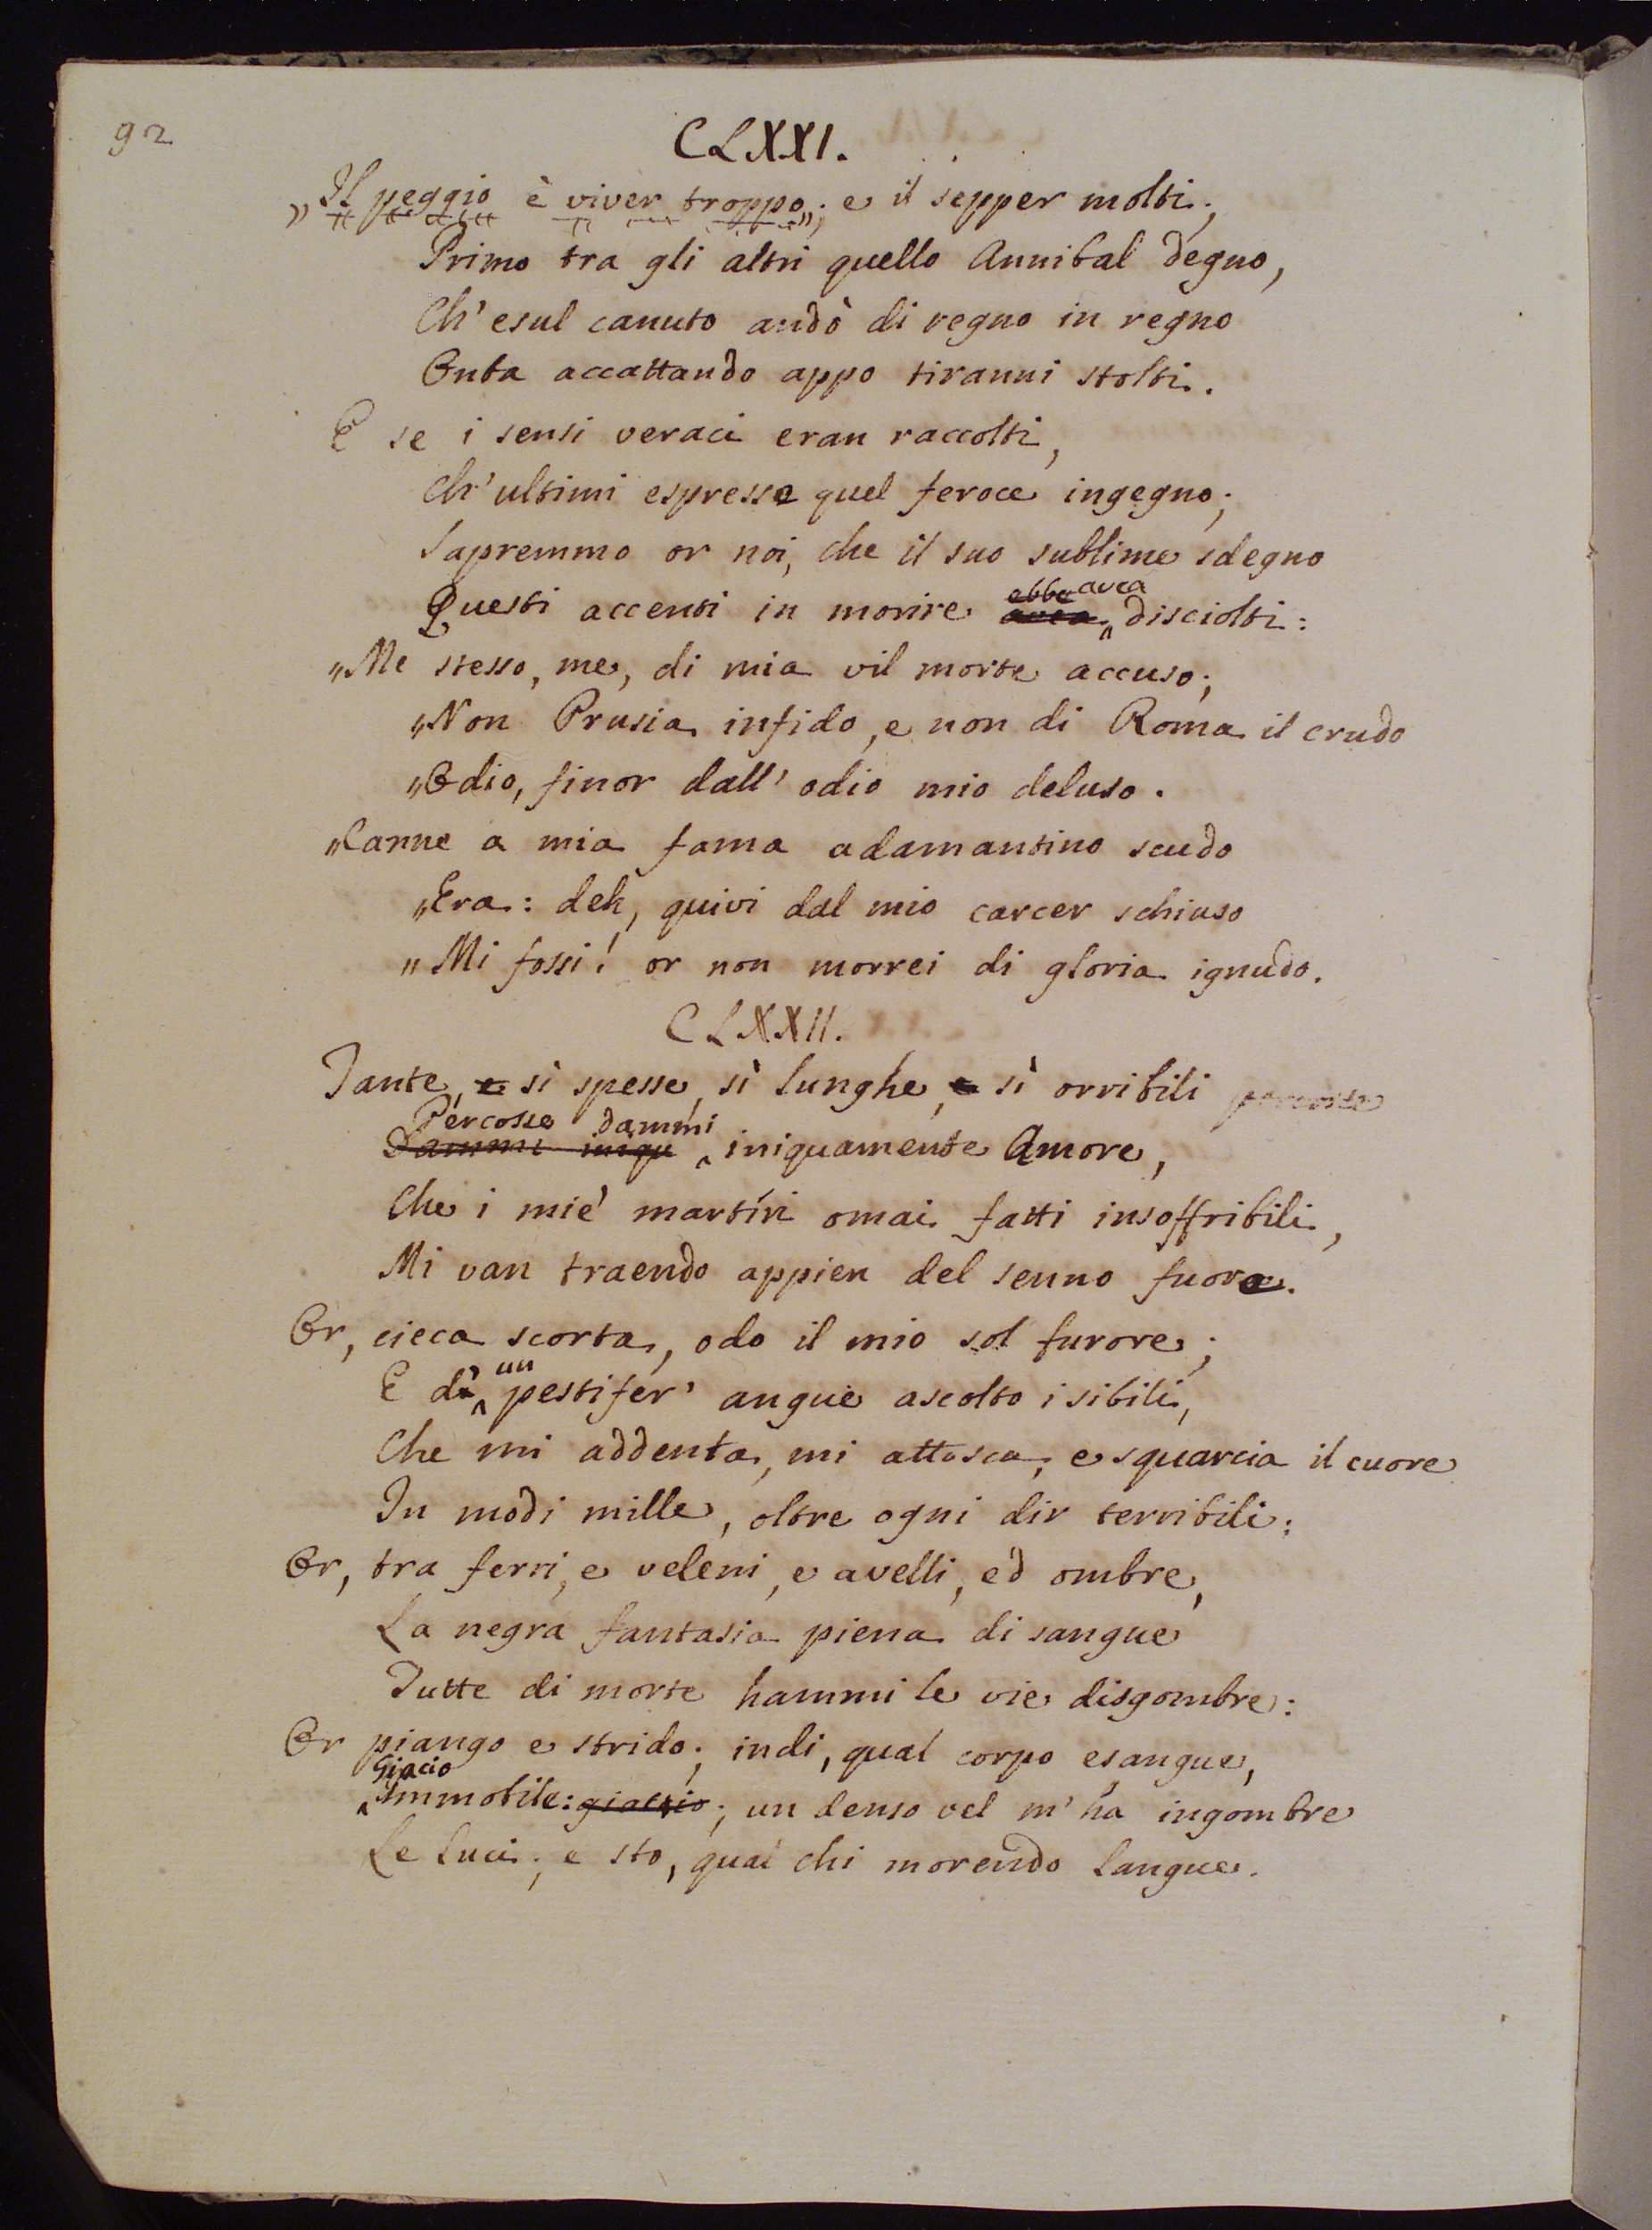 92
CLXXI.
„Il peggio è viver troppo„; e il sepper molti;
Primo tra gli altri quello Annibal degno,
Ch'esul canuto andò di regno in regno
Onta accattando appo tiranni stolti.
E se i sensi veraci eran raccolti,
Ch'ultimi espresse quel feroce ingegno;
Sapremmo or noi, che il suo sublime sdegno
ebbe avea
Questi accenti in morire avea disciolti:
„Me stesso, me, di mia vil morte accuso;
„Non Prusia infido, e non di Roma il crudo
„Odio, finor dall'odio mio deluso.
„Canne a mia fama adamantino scudo
„Era: deh, quivi dal mio carcer schiuso
„Mi fossi! or non morrei di gloria ignudo.
CLXXII.
Tante, e sì spesse, sì lunghe, e sì orribili percosse
Percosse dammi
Dammi iniqu iniquamente Amore,
Che i mie' martíri omai fatti insoffribili,
Mi van traendo appien del senno fuore.
Or, cieca scorta, odo il mio sol furore;
un
E di pestifer' angue ascolto i sibili,
Che mi addenta, mi attosca, e squarcia il cuore
In modi mille, oltre ogni dir terribili:
Or, tra ferri, e veleni, e avelli, ed ombre,
La negra fantasia piena di sangue
Tutte di morte hammi le vie disgombre:
Or piango e strido; indi, qual corpo esangue,
Giacio
Immobile: giaccio; un denso vel m'ha ingombre
Le luci; e sto, qual chi morendo langue.